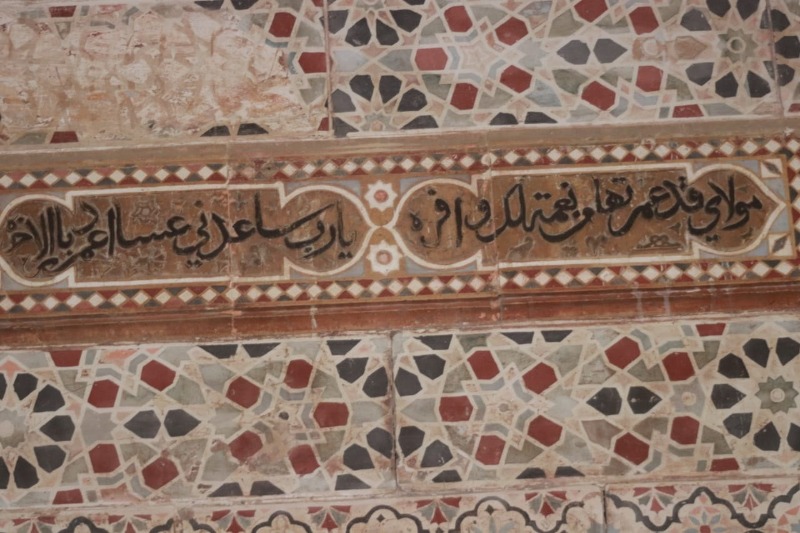 مولاي قد عمرتها من نعمة لك وافره
يا رب ساعدني عسا اعمر بيا الاخره